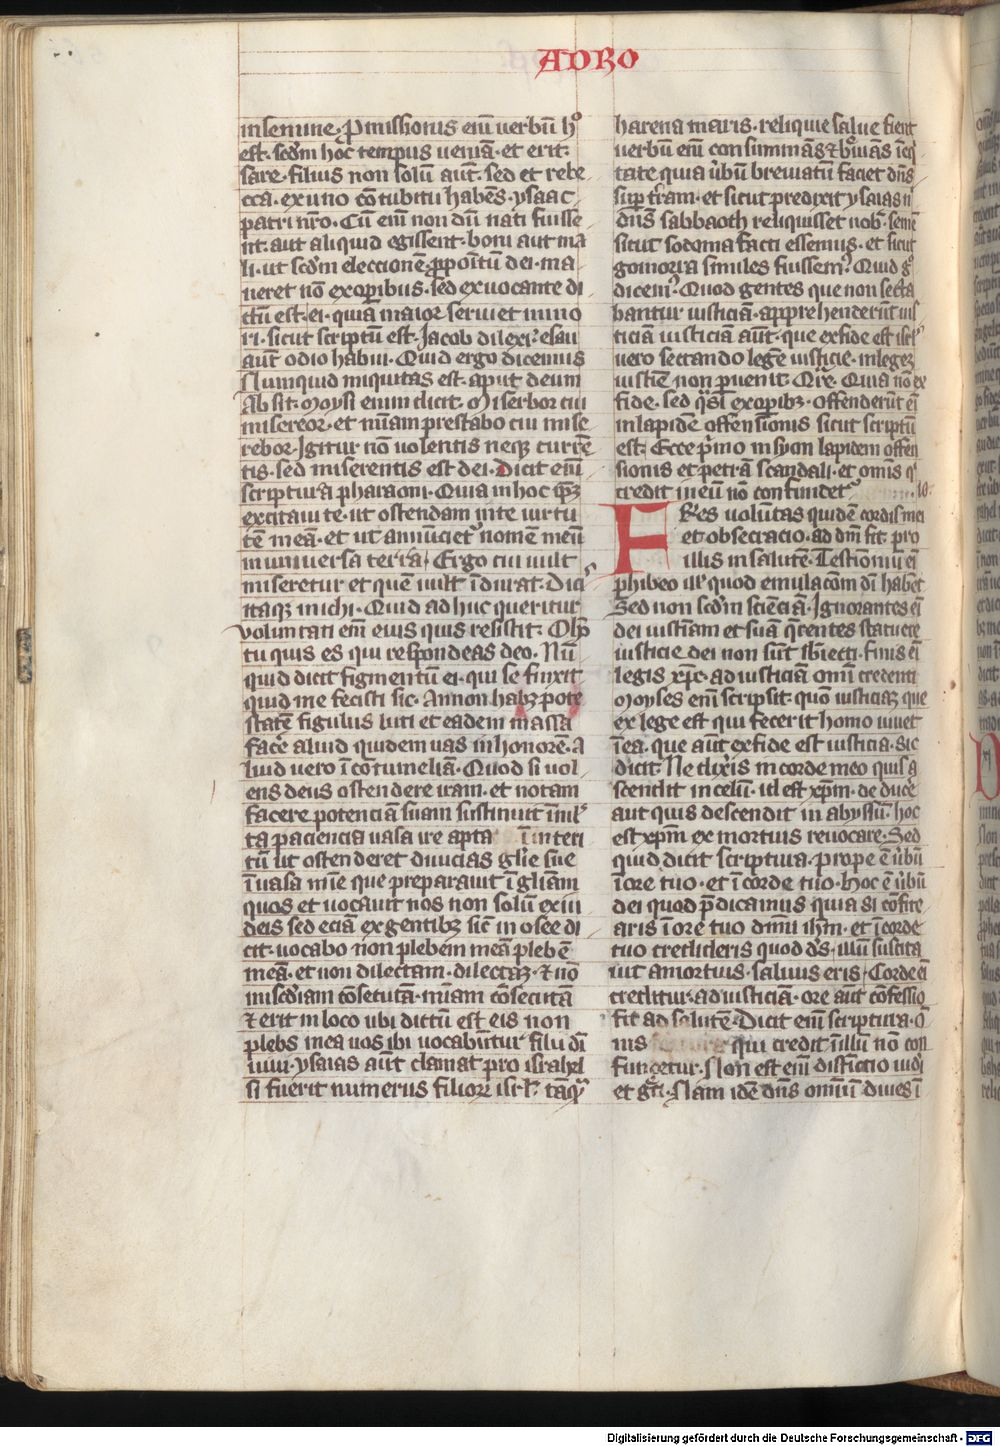 AD RO
in semine. Promissionis eni͂ uerbu͂ hͦ
est. scd͂m hoc tempus uenia͂. et erit
sare filius non solu͂ aut͂. sed et rebe
cca. ex uno co͂cubitu habe͂s. ysaac
patri nr͂o. Cu͂ eni͂ non du͂ nati fuisse
nt. aut aliquid egissent. boni aut ma
li. ut scd͂m eleccione͂ propoitu͂ dei. ma
neret no͂ ex operibus. sed ex uocante di
ctu͂ est. ei. quia maior seruiet mino
ri. sicut scriptu͂ est. Jacob dilexi. esau
aut͂ odio habui. Quid ergo dicemus
Nunquid iniquitas est. aput deum
Absit. Moysi enim dicit. Miserbor cui
misereor. et mi͂am prestabo cui mise
rebor. Igitur no͂ uolentis neqꝫ curre͂
tis. sed miserentis est dei. Dicit eni͂
scriptura pharaoni. Quia in hoc ip͂ꝫ
excitaui te. ut ostendam in te uirtu
te͂ mea͂. et ut annu͂ciet͛ nome͂ meu͂
in uniuersa terra. Ergo cui uult
miseretur et que͂ uult i͂durat. Dicis
itaqꝫ michi. Quid adhuc queritur
voluntati em͂ euis quis resistit. O hͦ
tu quis es qui respondeas deo. Nu͂
quid dicit figmentu͂ ei. qui se finxit
quid me fecisti sic. An non habꝫ pote
state͂ figulus luti et eadem massa
face͛ aliud quidem uas in honore͂. a
liud uero i͂ co͂tumelia͂. Quod si uol
ens deus ostendere iram. et notam
facere potencia͂ suam sustinuit i͂ mul͛
ta paciencia uasa ire apta i͂ interi
tu͂ ut ostenderet diuicias gl͂ie su͂e
i͂ uasa mi͂e que preparauit i͂ gl͂iam
quos et uocauit nos non solu͂ ex iu
deis sed ecia͂ ex gentibꝫ sic͂ in osee di
cit. uocabo non plebem mea͂ plebe͂
mea͂. et non dilectam. dilecta͂ꝫ. ⁊ no͂
mis͂cdiam co͂secuta͂. mi͂am co͂secuta͂
⁊ erit in loco ubi dictu͂ est eis non
plebs mea uos ibi uocabu͂tur filii di͂
uiui. ysaias aut͂ clamat pro israhel
si fuerit numerus filioꝝ isrl͂. ta͂qͣ
harena maris. reliquie salue fient
uerbu͂ eni͂ consumma͂s ⁊ bͦuia͂s i͂ eq͛
tate quia u͛bu͂ breuiatum faciet dn͂s
sup͛ t͛ram. et sicut predixit ysaias ni
dn͂s sabbaoth reliquisset nob͛. seme͂
sicut sodoma facti essemus. et sicut
gomorra similes fuissem͛. Quid gͦ
dicem͛. Quod gentes que non secta
bantur iusticia͂. apprehenderu͂t ius
ticia͂ iusticia͂ aut͂. que ex fide est isrl͛
uero sectando lege͂ iusticie. in legeꝫ
iustie͂ non p͛uenit. Qr͂e. Quia no͂ ex
fide. sed qͣsi ex operibꝫ. Offenderu͂t ei͂
in lapidem offensionis sicut scriptu͂
est. Ecce p͛mo in syon lapidem offen
sionis et petra͂ scandali. et omi͂s qͥ
credit in eu͂ no͂ confundet͛
Fr͂es uolu͂tas quide͂ cordis mei
et obsecracio. ad dm͂ fit pro
illis in salute͂. Testimoniu͂ ei͂
p͛hibeo ill͛ quod emulaco͂m di͂ habe͂t
Sed non scd͂m scie͂cia͂. Ignorantes ei͂
dei iusti͂am et sua͂ qͣrentes statuere
iusticie dei non su͂t sb͛iecti. finis ei͂
legis xp͂c. ad iusticia͂ omi͂ credenti
Moyses eni͂ scripsit. qm͂ iusticiaꝫ que
ex lege est qui fecerit homo uiuet
i͂ ea. que aut͂ ex fide est iusticia. sic
dicit. Ne dix͛is in corde meo quis a
scendit in celu͂. id est xp͂m. deduce͛
aut quis descendit in abyssu͂. hoc
est xp͂m ex mortuis reuocare. Sed
quid dicit scriptura. prope e͂ u͛bu͂
i͂ ore tuo. et i͂ corde tuo. hoc e͂ u͛bu͂
dei quod p͂dicamus quia si co͂fite
aris i͂ ore tuo dm͂u ih͂m. et i͂ corde
tuo credideris quod d͂s. illu͂ suscita
uit a mortuis. saluus eris. Corde ei͂
creditur. ad iusticia͂. ore aut͂ co͂fessio
fit ad salute͂. Dicit eni͂ scriptura. o͂
nis qui credit i͂ illu͂ no͂ con
fundetur. Non est eni͂ distinctio iudei
et g͛ci. Nam ide͂ dn͂s omniu͂ diues i͂
Digitalisierung gefördert durch die Deutsche Forschungsgemeinschaft - DFG